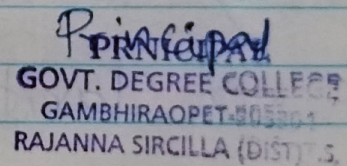 Principal
PRINCIPAL
GOVT. DEGREE COLLEGE
GAMBHIRAOPET-505304
RAJANNA SIRCILLA (DIST) T.S.